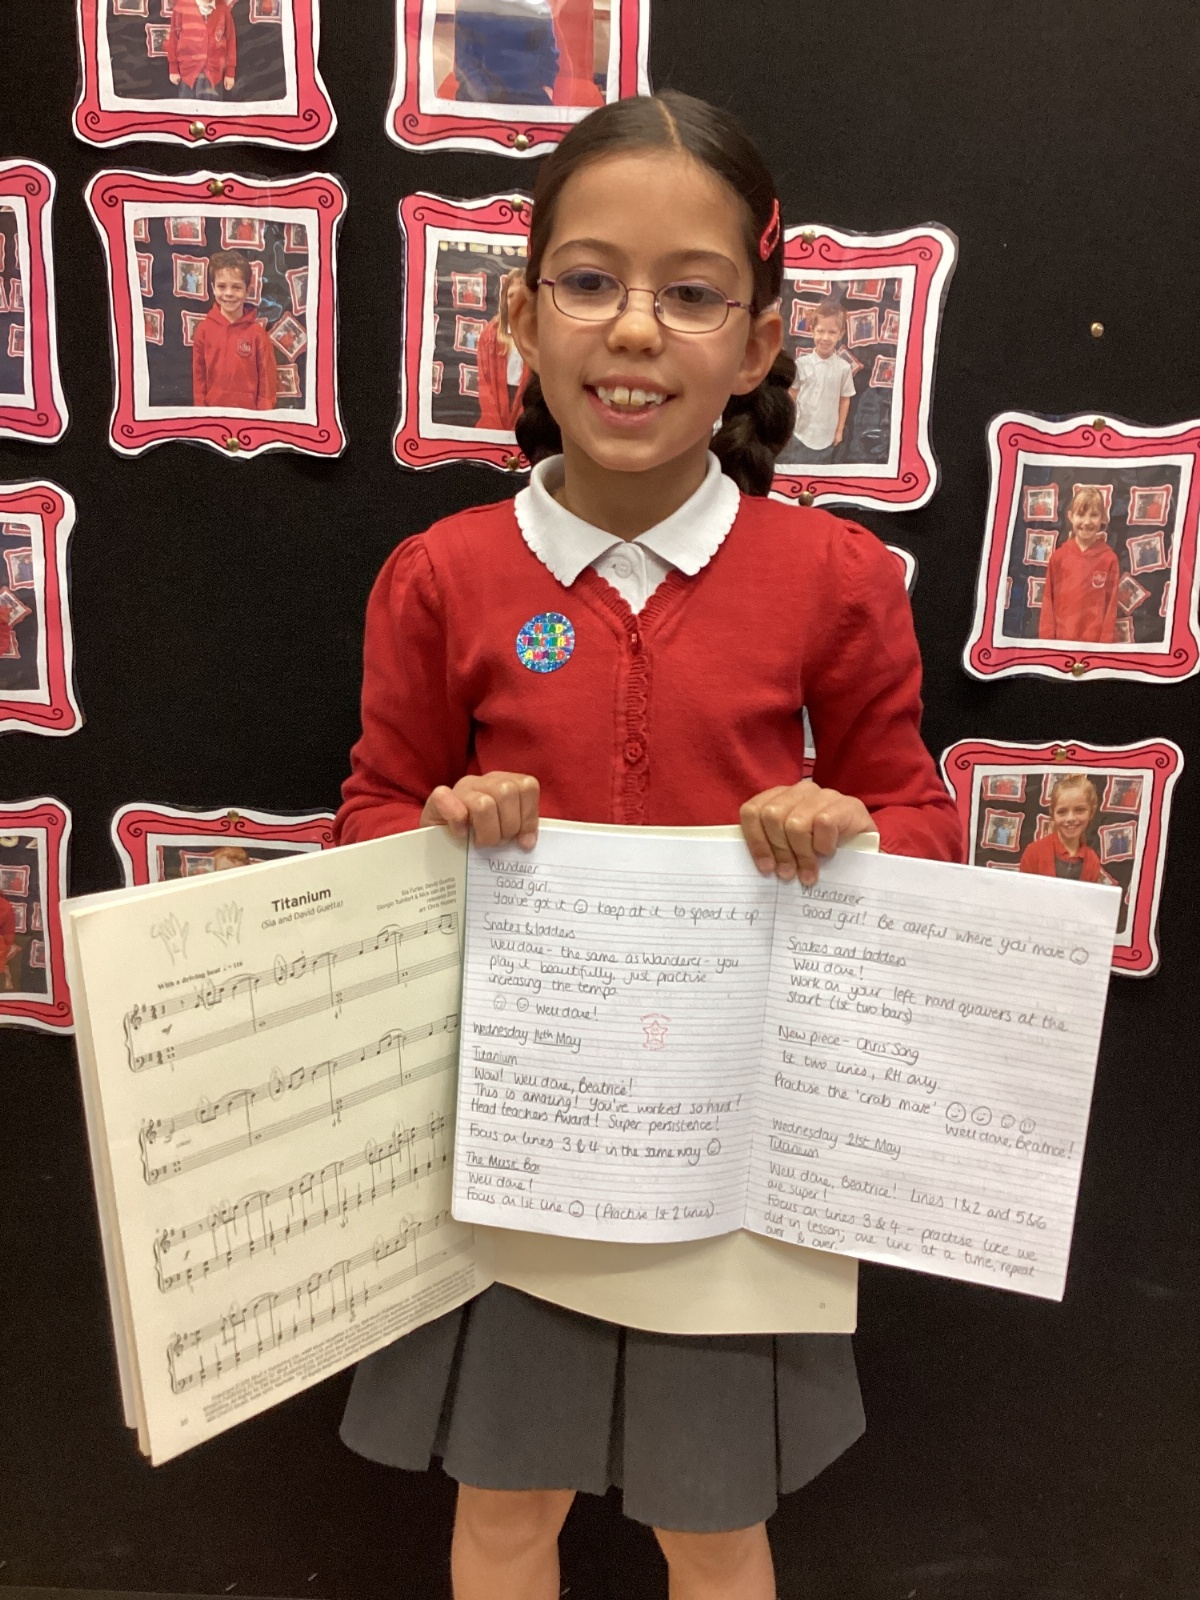 HEAD
TEACHER'S
AWARD
Titanium
(Sia and David Guetta)
Sia Furler, David Guetta
Giorgio Tuinfort & Nick van de Wall
arr. Chris Hussey
With a driving beat ♩ = 116
Wanderer
Good girl.
You've got it ☺ keep at it to speed it up
Snakes & ladders
Well done - the same as Wanderer - you
play it beautifully, just practise
increasing the tempo
☺ ☺ Well done!
Wednesday 14th May
Titanium
Wow! Well done, Beatrice!
This is amazing! You've worked so hard!
Head teachers Award! Super persistence!
Focus on lines 3 & 4 in the same way ☺
The Music Box
Well done!
Focus on 1st line ☺ (Practise 1st 2 lines).
Wanderer
Good girl! Be careful where you move ☺
Snakes and ladders
Well done!
Work on your left hand quavers at the
start (1st two bars)
New piece - Chris' Song
1st two lines, RH only.
Practise the 'crab move' ☺ ☺ ☺ ☺
Well done, Beatrice!
Wednesday 21st May
Titanium
Well done, Beatrice! Lines 1 & 2 and 5 & 6
are super!
Focus on lines 3 & 4 - practise like we
did in lesson, one line at a time, repeat
over & over.